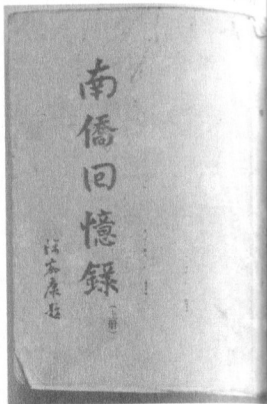 南僑回憶錄
（上册）
陳嘉庚題